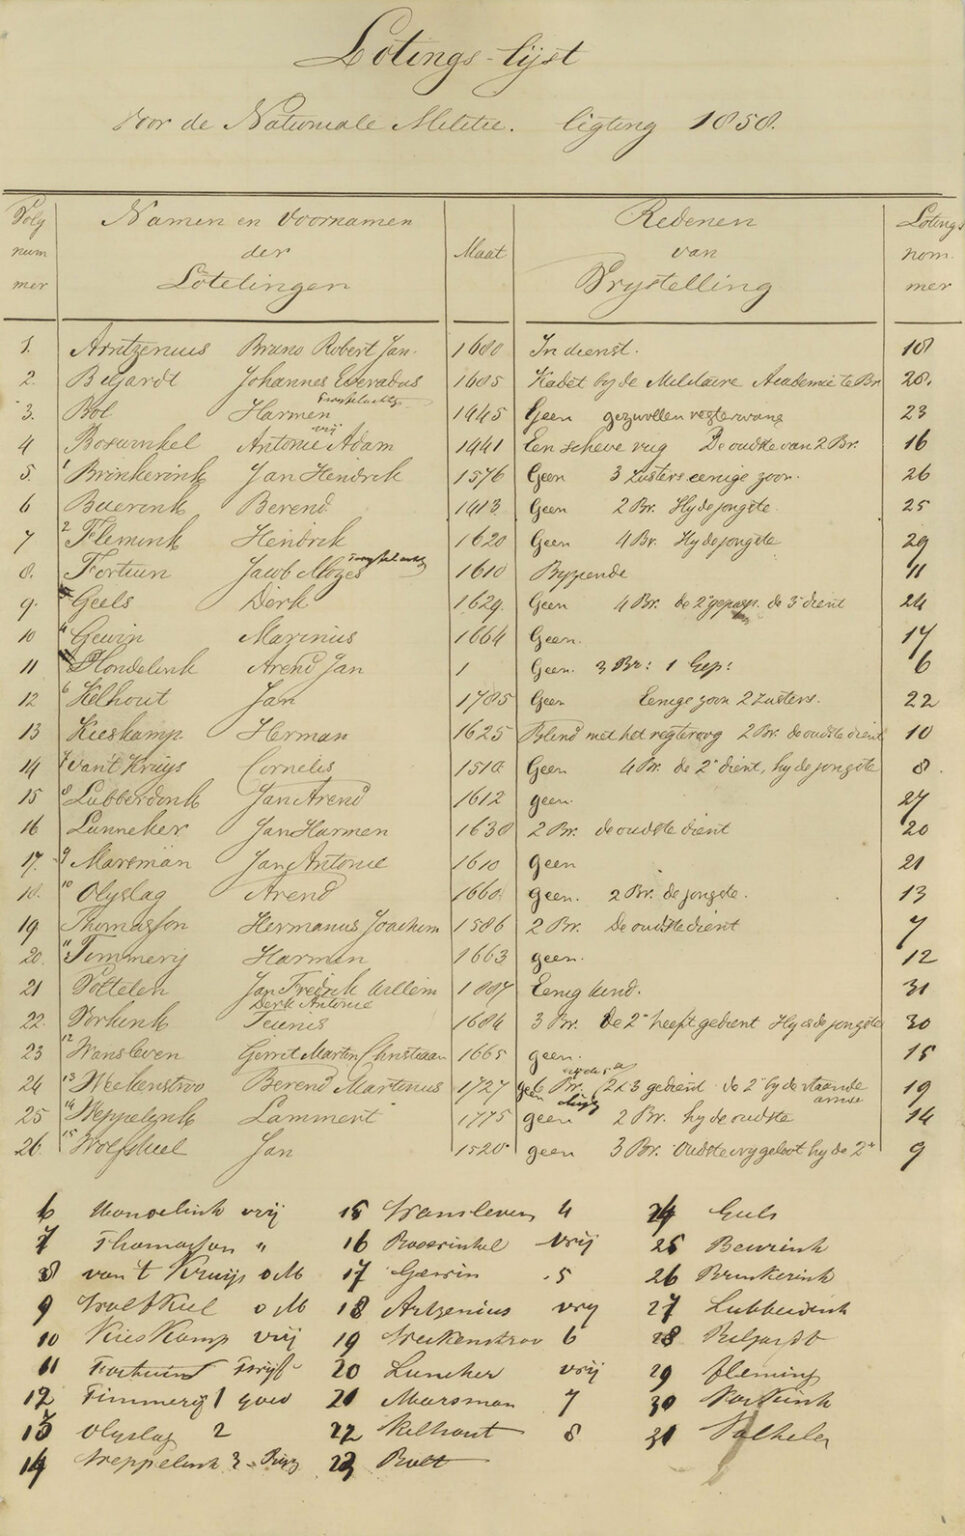 Lotings-lijst
voor de Nationale Militie. ligting 1858.
Volg nummer
Namen en Voornamen der Lotelingen
Maat
Redenen van Vrystelling
Lotings nommer
1. Arntzenius Bruno Robert Jan. 1680 In dienst. 18
2. Beijardt Johannes Everadus 1685 Kadet by de Militaire Academie te Br 28.
3. Bol Harmen 1445 Geen gezwollen regterwang 23
4 Boswinkel Antonie Adam vrij 1441 Een scheve rug De oudste van 2 Br. 16
5. 1 Brinkerink Jan Hendrik 1576 Geen 3 Zusters eenige zoon. 26
6 Buerink Berend 1413 Geen 2 Br. Hy de jongste 25
7 2 Flemink Hendrik 1620 Geen 4 Br. Hy de jongste 29
8. Fortuin Jacob Mozes 1610 Byziende 11
9. Geels Derk 1629. Geen 4 Br. de 2e de 3e dient 24
10 4 Gewin Marinus 1664 Geen. 17
11 Hondelink Arend Jan 1 Geen. 3 Br: 1 Gep: 6
12 6 Kelhout Jan 1785 Geen Eenige zoon 2 Zusters. 22
13 Kieskamp Herman 1625 Blind met het regteroog 2 Br. de oudste dient 10
14 7 van't Kruijs Cornelis 1510 Geen 4 Br. de 2e dient, hy de jongste 8.
15 8 Lubberdink Jan Arend 1612 geen. 27
16 Lunneker Jan Harmen 1630 2 Br. de oudste dient 20
17. 9 Marsman Jan Antonie 1610 geen 21
18. 10 Olyslag Arend 1660. geen. 2 Br. de jongste. 13
19 Thomasson Hermanus Joachim 1586 2 Br. De oudste dient 7
20. 11 Timmerij Harmen 1663 geen. 12
21 Jan Fredrik Willem 1807 Eenig kind. 31
22. Derk Antonie Teunis 1684 3 Br. de 2e heeft gedient Hy is de jongste 30
23 12 Wansleven Gerrit Martin Christiaan 1665 geen. 15
24 13 Weekenstroo Berend Martinus 1727 Br. 2 & 3 gedient de 2e by de staande armee 19
25 14 Weppelink Lammert 1775 geen 2 Br. hy de oudste 14
26. 15 Wolfskeel Jan 1520. geen 3 Br. Oudste vrygeloot hy de 2e 9
6 Hondelink vrij 15 Wansleven 4 24 Geels
7 Thomasson " 16 Boeswinkel vrij 25 Beurink
8 van t Kruijs o M 17 Gewin 5 26 Brinkerink
9 Wolfkiel o M 18 Artzenius vry 27 Lubberdink
10 Kieskamp vrij 19 Weekenstroo 6 28 Beljardt
11 Fortuin 20 Luneker vrij 29 fleming
12 Timmerij 1 goed 21 Marsman 7 30
13 Olyslag 2 22 Kelhout 8 31
14 Weppelink 3 23 Bolt